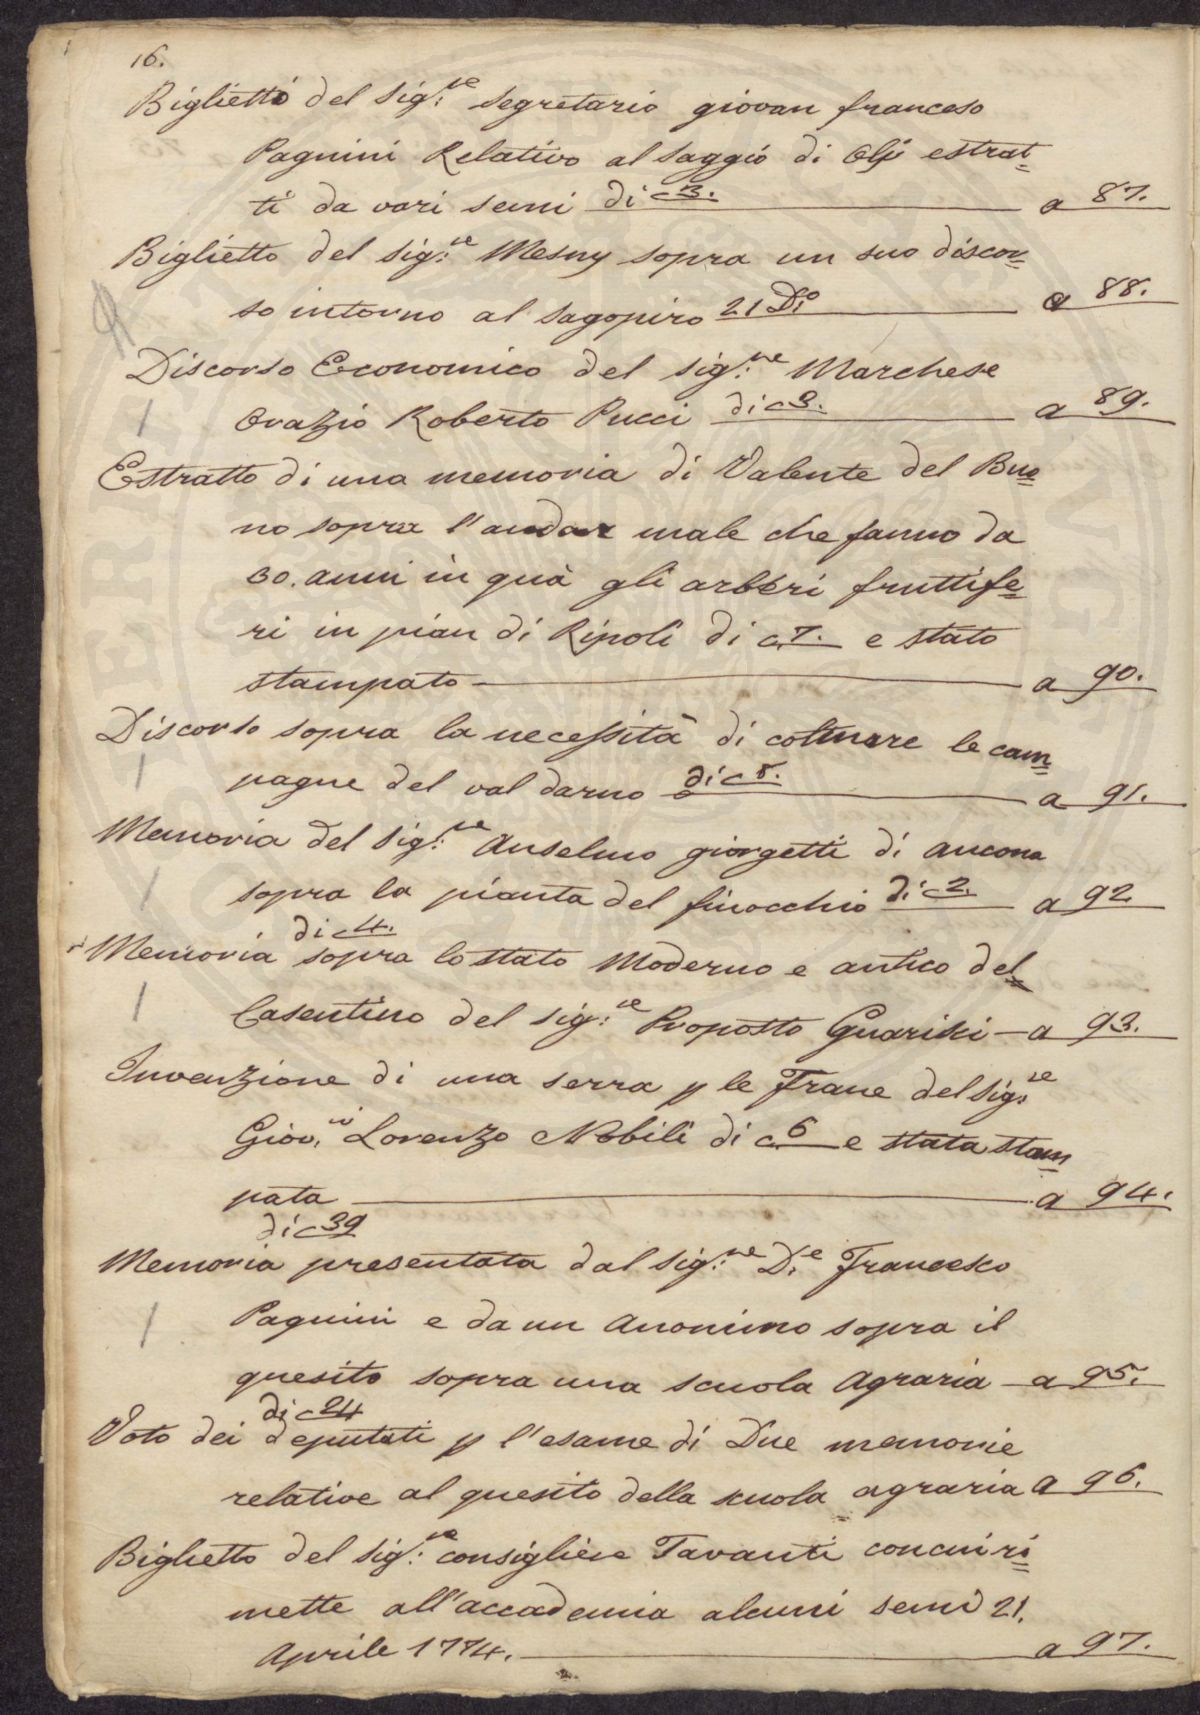 16.
Biglietto del Sig:re segretario giovan franceso
Pagnini Relativo al saggio di Olji estrat=
ti da vari semi di c 3. a 87.
Biglietto del sig:re Mesny sopra un suo discor=
so intorno al sagopiro 21 Do a 88.
Discorso Economico del sig:re Marchese
Orazio Roberto Pucci di c 3. a 89.
Estratto di una memoria di Valente del Buo=
no sopra l'andar male che fanno da
30. anni in quà gli arberi fruttife=
ri in pian di Ripoli di c 7. e stato
stampato a 90.
Discorso sopra la necessità di colmare le cam=
pagne del val darno di c 8. a 91.
Memoria del Sig:re Anselmo giorgetti di ancona
sopra la pianta del finocchio di c 2. a 92
di c 4.
Memoria sopra lo stato Moderno e antico del=
Casentino del sig:re Proposto Guarini a 93.
Invenzione di una serra p le Frane del Sig:re
Giov:ni Lorenzo Nobili di c 6 e stata stam=
pata a 94.
di c 39
Memoria presentata dal Sig:re D:e Francesko
Pagnini e da un Anonimo sopra il
quesito sopra una scuola Agraria a 95.
di c 24
Voto dei deputati p l'esame di Due memorie
relative al quesito della scuola agraria a 96.
Biglietto del Sig:re consigliere Tavanti con cui ri=
mette all'accademia alcuni semi 21.
Aprile 1774. a 97.